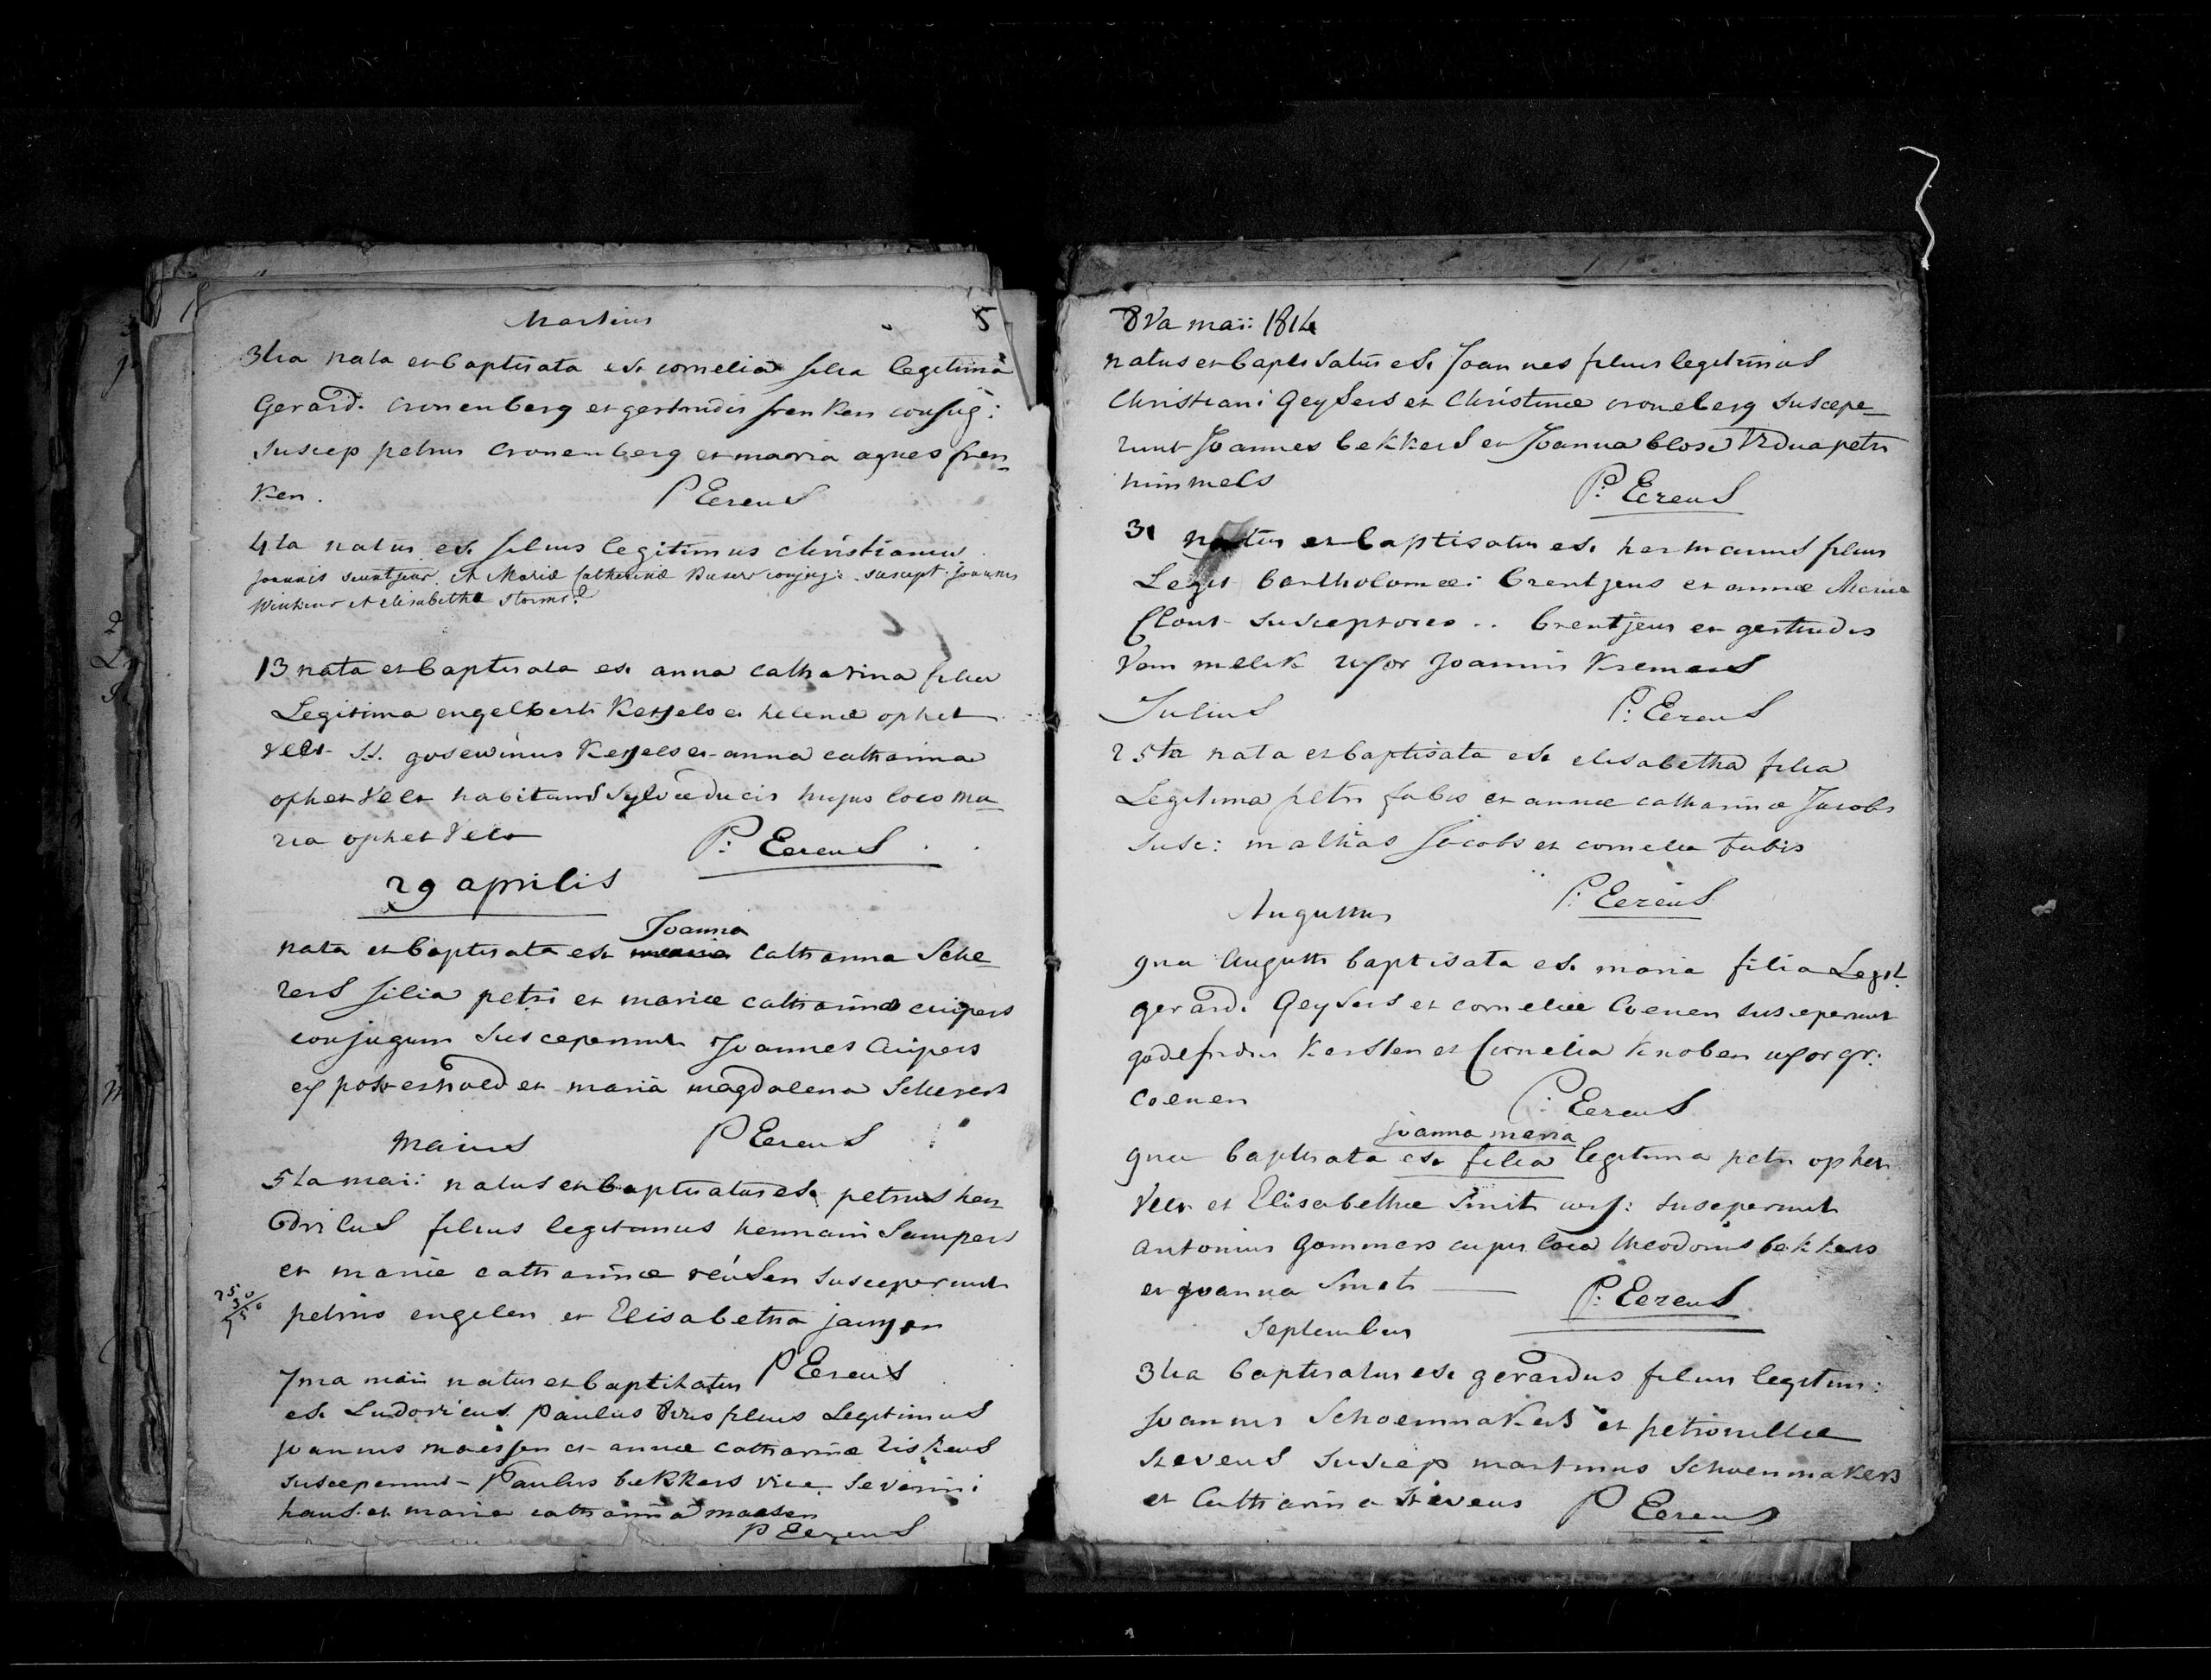 Martius 5
3tia nata et baptisata est cornelia filia legitima
Gerard. Cronenberg et gertrudis frenken conjug:
suscep petrus Cronenberg et maria agnes fren-
ken. P Eereus
4ta natus est filius legitimus christianus
Joannis et Mariæ Catharinæ conjug: suscept. Joannes
et elisabetha
13 nata et baptisata est anna catharina filia
Legitima engelberti Kessels et helenæ ophet
velt ss. gosewinus Kessels et anna catharina
ophet velt habitans Sylvæducis hujus loco ma-
ria ophet velt P: Eereus
29 aprilis
Joanna
nata et baptisata est maria catharina Sche-
rers filia petri et mariæ catharinæ cuipers
conjugum susceperunt Joannes Cuipers
ex posterholt et maria magdalena Scherers
maius P Eereus
5ta maii natus et baptisatus est petrus hen-
dricus filius legitimus hermani Sampers
et mariæ catharinæ reusen susceperunt
petrus engelen et Elisabetha janssen
7ma maii natus et baptisatus P Eereus
est Ludovicus paulus filius Legitimus
joannis maessen et annæ catharinæ
susceperunt Paulus bekkers vice Severini
hans et maria catharina maesen
P Eereus
8va maii 1814
natus et baptisatus est Joannes filius legitimus
Christiani Geysers et Christinæ croneberg suscepe-
runt Joannes bekkers et Joanna vidua petri
himmels P: Eereus
31 natus et baptisatus est hermanus filius
Legit bartholomæi brentjens et annæ Mariæ
Clout susceptores .. brentjens et gertrudis
van melik uxor Joannis Kremers
Julius P: Eereus
25ta nata et baptisata est elisabetha filia
Legitima petri et annæ catharinæ Jacobs
susc: mathias Jacobs et cornelia
P: Eereus
Augustus
9na Augusti baptisata est maria filia Legit
gerardi Geysers et corneliæ Coenen susceperunt
godefridus Kersten et Cornelia Knoben uxor gr:
coenen P: Eereus
joanna maria
9na baptisata est filia legitima petri ophet
velt et Elisabethæ Smit conj: susceperunt
antonius gommers cujus loco theodorus bekkers
et joanna Smets P: Eereus
September
3tia baptisatus est gerardus filius legitim:
joannis Schoenmakers et petronillæ
stevens suscep martinus Schoenmakers
et Catharina stevens P Eereus